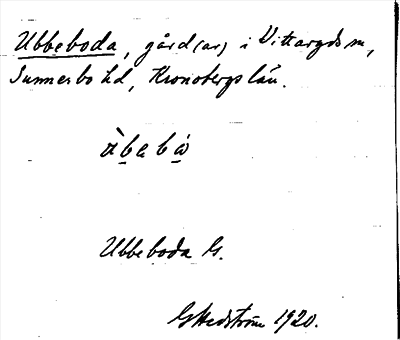 Ubbeboda, gård(ar) i Vittaryds sn,
Sunnerbo hd, Kronobergs län.
Ubbeboda G.
G Hedström 1920.